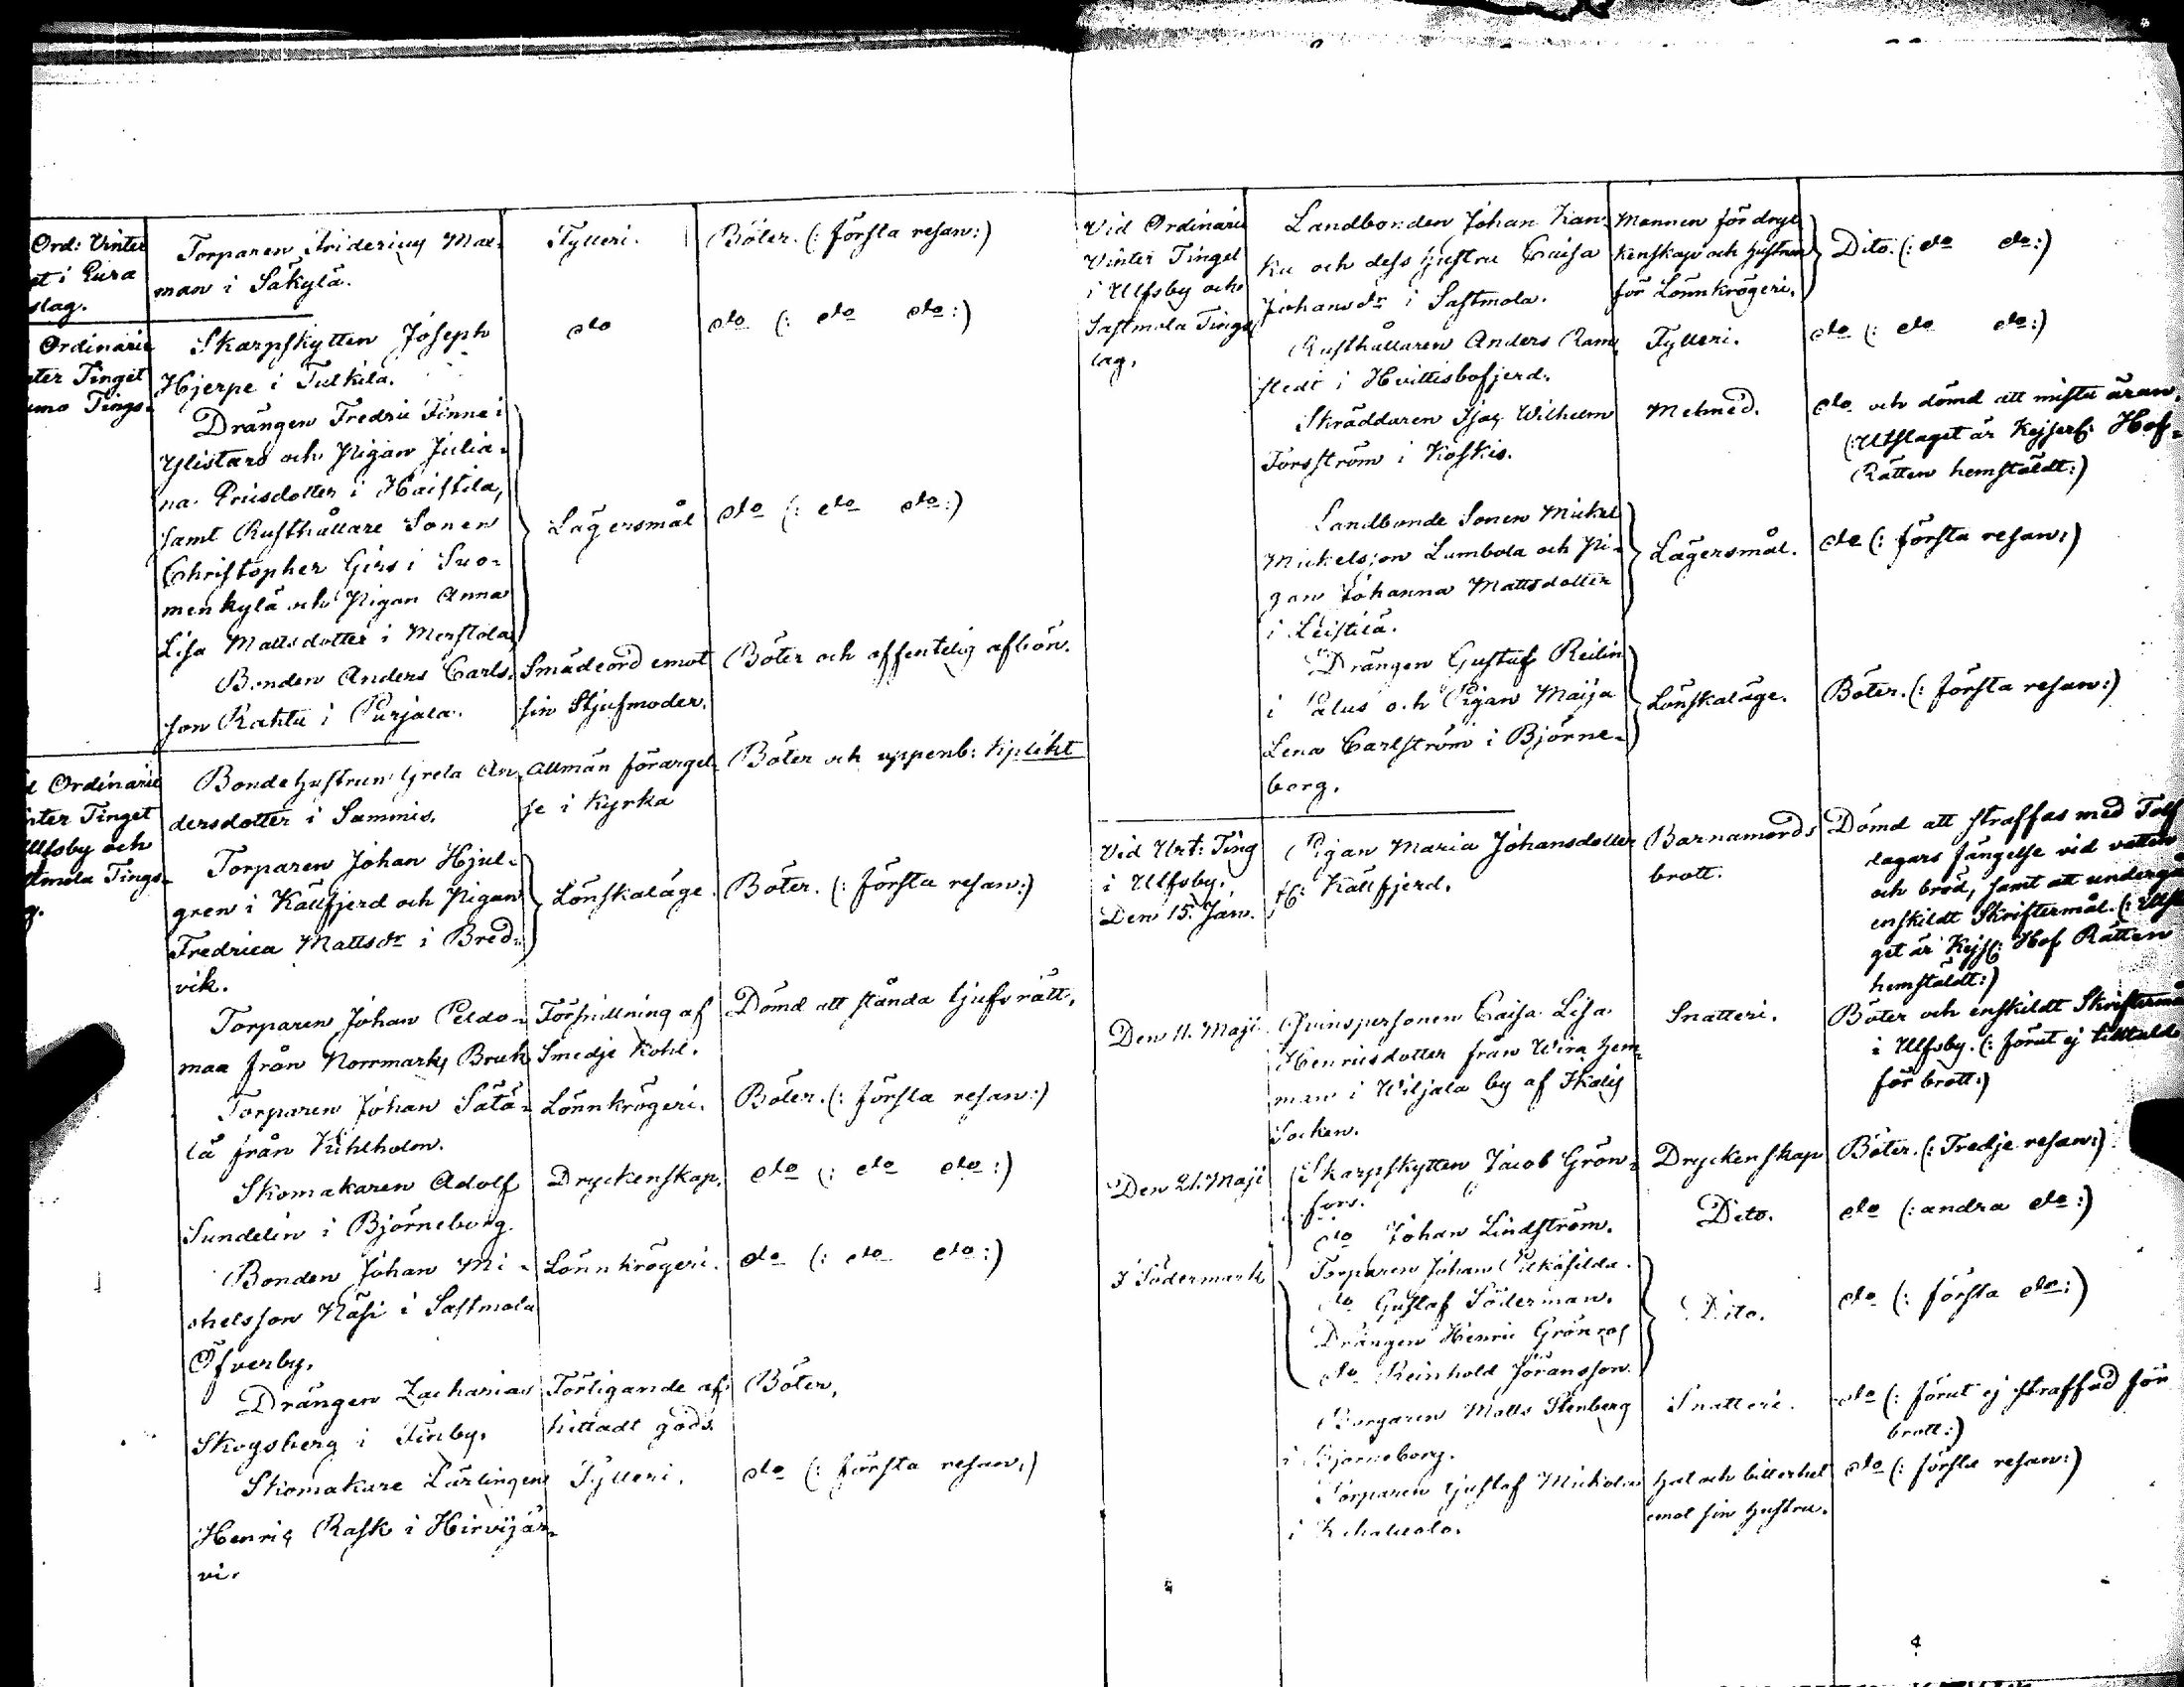 Ord: Vinter
et i Eura
slag.
Torparen Fridericq Mar-
man i Säkylä.
Fylleri.
Böter. (: första resan:)
Ordinarie
nter Tinget
umo Tings-
Skarpskytten Joseph
Hjerpe i Tulkila.
do
do (: do do:)
Drängen Fredric Finne i
Ylistaro och Pigan Julia-
na Ericsdotter i Haistila,
samt Rusthållare Sonen
Christopher Girs i Suo-
menkylä och Pigan Anna
Lisa Mattsdotter i Merstola
Lägersmål
do (: do do:)
Bonden Anders Carls-
son Rahtu i Purjala.
Smädeord emot
sin Stjufmoder.
Böter och offentelig afbön.
Ordinarie
nter Tinget
Ulfsby och
stmola Tings-
g.
Bondehustrun Greta An-
dersdotter i Sammis.
allmän förargel-
se i Kyrka
Böter och uppenb: Kplikt
Torparen Johan Hjul-
gren i Källfjerd och Pigan
Fredrica Mattsdr i Bred-
vik.
Lönskaläge.
Böter. (: första resan:)
Torparen Johan Peldo-
maa från Norrmarks Bruk
Förskillning af
Smedje Kohl.
Dömd att stånda tjufs rätt.
Torparen Johan Sätä-
lä från Kihlholm.
Lönnkrögeri.
Böter. (: första resan:)
Skomakaren Adolf
Sundelin i Björneborg.
Dryckenskap.
do (: do do:)
Bonden Johan Mi-
chelsson Näsi i Sastmola
Öfverby.
Lönnkrögeri.
do (: do do:)
Drängen Zacharias
Skogsberg i Finby.
Förtigande af
hittadt gods.
Böter.
Skomakare Lärlingen
Henric Rask i Hirvijär-
vi.
Fylleri.
do (: första resan:)
Vid Ordinarie
Vinter Tinget
i Ulfsby och
Sastmola Tings
lag.
Landbonden Johan Kan-
ku och dess Hustru Caisa
Johansdr i Sastmola.
Mannen för dryc
kenskap och hustrun
för Lönnkrögeri.
Dito. (: do do:)
Rusthållaren Anders Ram
stedt i Hvittisbofjerd.
Fylleri.
do (: do do:)
Skräddaren Isac Wilhelm
Forsström i Koskis.
Mened.
do och dömd att mista äran.
(: Utslaget är Kejserl: Hof-
Rätten hemstäldt:)
Landbonde Sonen Mickel
Mickelsson Lambola och Pi-
gan Johanna Mattsdotter
i Leistilä.
Lägersmål.
do (: första resan:)
Drängen Gustaf Reilin
i Palus och Pigan Maija
Lena Carlström i Björne-
borg.
Lönskaläge.
Böter. (: första resan:)
Vid Urt: Ting
i Ulfsby.
Den 15. Jan.
Pigan Maria Johansdotter
fr: Källfjerd.
Barnamords
brott.
Dömd att straffas med Tolf
dagars fängelse vid vatten
och bröd, samt att undergå
enskildt Skriftermål. (: Utsla
get är Kejs: Hof Rätten
hemstäldt:)
Den 11. Maji
Qvinspersonen Caisa Lisa
Henricsdotter från Wira hem
man i Wiljala by af Ikalis
Socken.
Snatteri.
Böter och enskildt Skriftermå
i Ulfsby. (: förut ej tilltald
för brott:)
Den 21. Maji
Skarpskytten Jacob Grön-
fors.
Dryckenskap
Böter. (: Tredje resan:)
do Johan Lindström.
Dito.
do (: andra do:)
I Södermark
Torparen Johan
do Gustaf Söderman.
Drängen Henric Grönroos
do Reinhold Göransson.
Dito.
do (: första do:)
Borgaren Matts Stenberg
i Björneborg.
Snatteri.
do (: förut ej straffad för
brott:)
Torparen Gustaf
i
hat och bitterhet
emot sin hustru.
do (: första resan:)